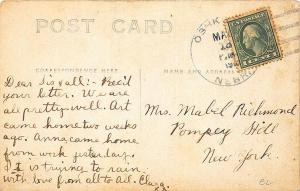 POST CARD
CORRESPONDENCE HERE
NAME AND ADDRESS
OSHK
MA
NEBR.
Dear Sis & all:- Rec'd
your letter. We are
all pretty well. Art
came home two weeks
ago. Anna came home
from work yesterday.
It is trying to rain
with love from all to all. Clara.
Mrs. Mabel Richmond
Pompey Hill
New York.